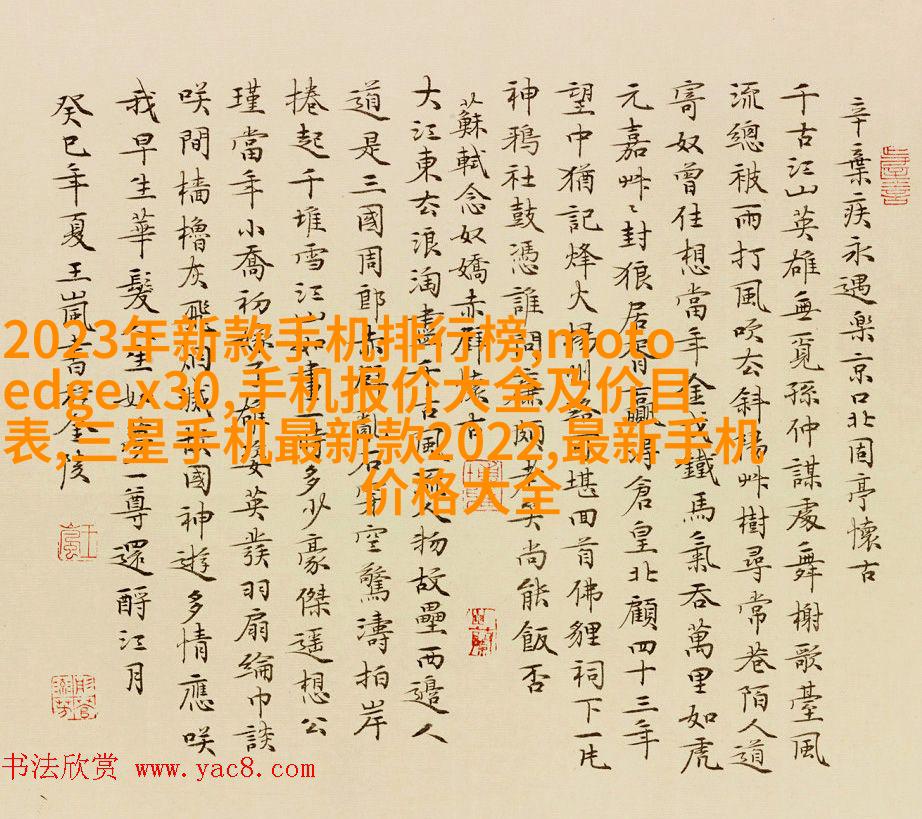 辛棄疾永遇樂京口北固亭懷古
千古江山英雄無覓孫仲謀處舞榭歌臺風
流總被雨打風吹去斜陽艸樹尋常巷陌人道
寄奴曾住想當年金戈鐵馬氣吞萬里如虎
元嘉艸〻封狼居胥贏得倉皇北顧四十三年
望中猶記烽火揚州路可堪回首佛貍祠下一片
神鴉社鼓憑誰問廉頗老矣尚能飯否
蘇軾念奴嬌赤壁懷古
大江東去浪淘盡千古風流人物故壘西邊人
道是三國周郎赤壁亂石穿空驚濤拍岸
捲起千堆雪江山如畫一時多少豪傑遥想公
瑾當年小喬初嫁了雄姿英發羽扇綸巾談
咲間檣櫓灰飛烟滅故國神遊多情應咲
我早生華髮人生如夢一尊還酹江月
癸巳年夏王嵐書於金陵
2023年新款手机排行榜,moto
edge x30,手机报价大全及价目
表,三星手机最新款2022,最新手机
价格大全
书法欣赏 www.yac8.com